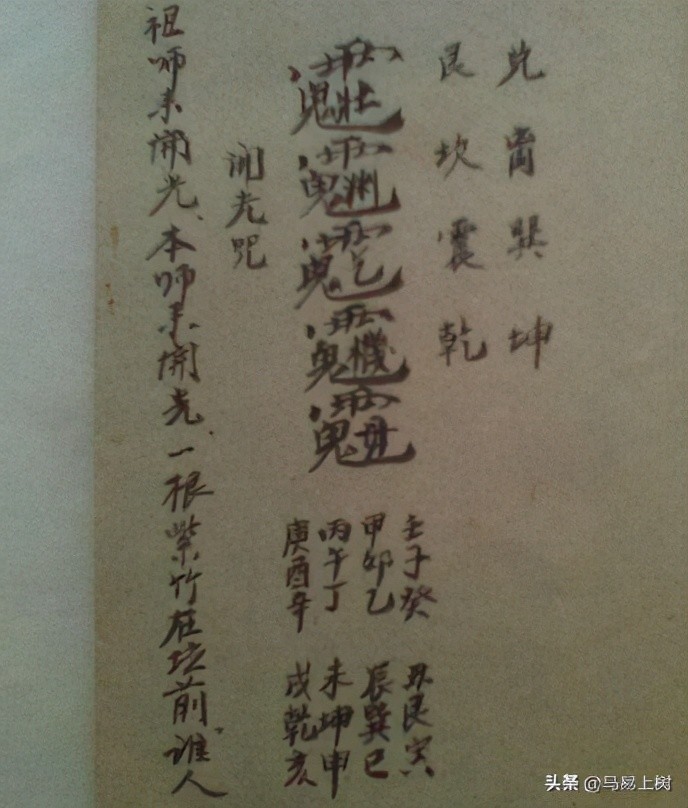 兑离巽坤
艮坎震乾
壬子癸 丑艮寅
甲卯乙 辰巽巳
丙午丁 未坤申
庚酉辛 戌乾亥
開光咒
祖师来開光、本师来開光、一根紫竹在坛前、谁人
头条 @马易上树